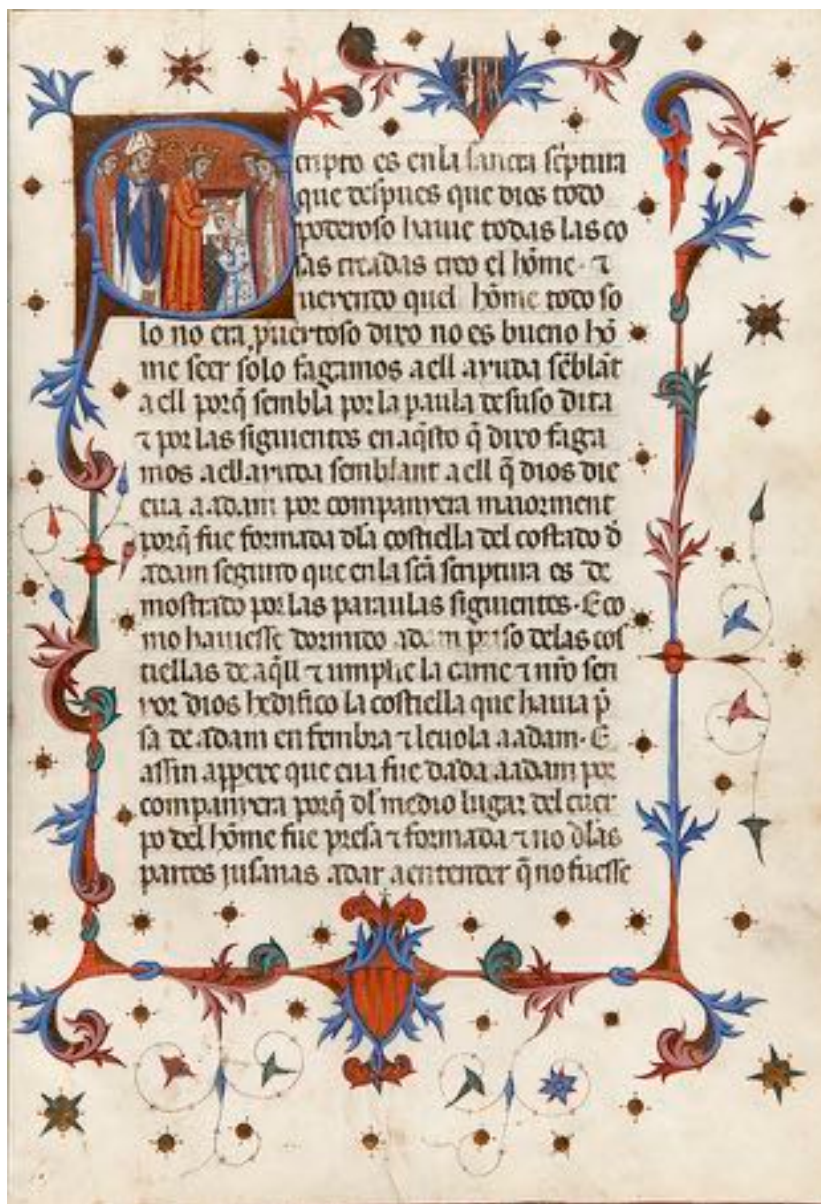 Scripto es en la sancta sc̃ptura
que despues que dios todo
poderoso haue todas las co
sas creadas creo el hõme · ⁊
uerendo quel hõme todo so
lo no era puertoso dixo no es bueno hõ
me seer solo fagamos a ell ayuda sẽblãt
a ell porq̃ sembla por la paula desuso dita
⁊ por las siguientes en aq̃sto q̃ dixo faga
mos a ell aiuda semblant a ell q̃ dios die
eua a adam por companyera maiorment
porq̃ fue formada dla costiella del costado d̃
adam seguido que en la scã scriptura es de
mostrado por las paraulas siguientes · E co
mo hauesse dormido adam priso de las cos
tiellas de aq̃ll ⁊ umplie la carne ⁊ nr̃o sen
yor dios hedifico la costiella que hauia p̃
sa de adam en fembra ⁊ leuola a adam · E
assin appere que eua fue dada a adam por
companyera porq̃ dl medio lugar del cuer
po del hõme fue presa ⁊ formada ⁊ no dlas
partes jusanas a dar a entender q̃ no fuesse